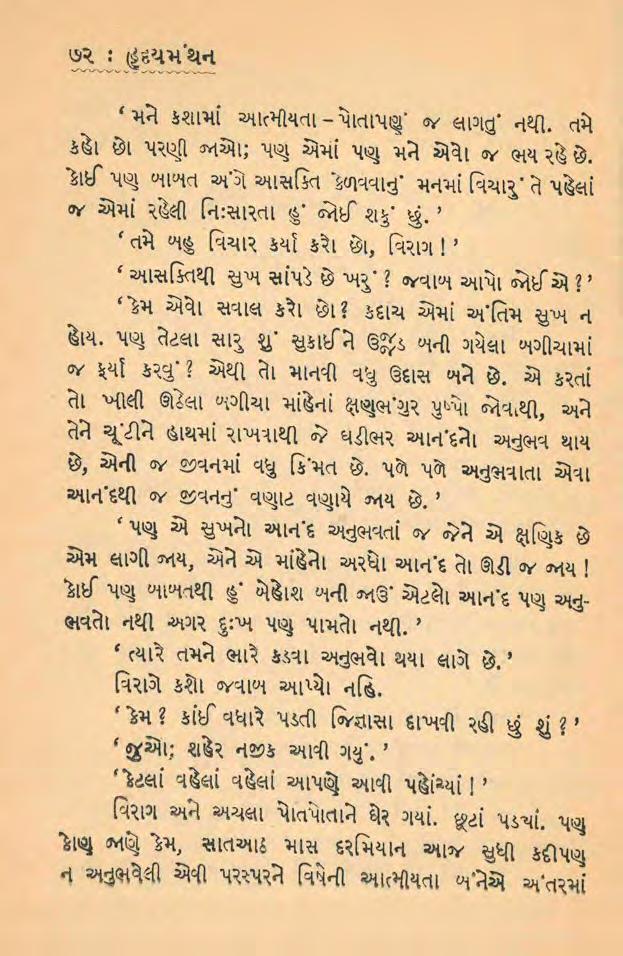 ૭૨ : હૃદયમંથન
‘ મને કશામાં આત્મીયતા – પોતાપણું જ લાગતું નથી. તમે
કહો છો પરણી જાઓ; પણ એમાં પણ મને એવો જ ભય રહે છે.
કોઈ પણ બાબત અંગે આસક્તિ કેળવવાનું મનમાં વિચારું તે પહેલાં
જ એમાં રહેલી નિઃસારતા હું જોઈ શકું છું. ’
‘ તમે બહુ વિચાર કર્યા કરો છો, વિરાગ ! ’
‘ આસક્તિથી સુખ સાંપડે છે ખરું ? જવાબ આપો જોઈ એ ? ’
‘ કેમ એવો સવાલ કરો છો ? કદાચ એમાં અંતિમ સુખ ન
હોય. પણ તેટલા સારુ શું સુકાઈને ઉજ્જડ બની ગયેલા બગીચામાં
જ ફર્યા કરવું ? એથી તો માનવી વધુ ઉદાસ બને છે. એ કરતાં
તો ખીલી ઊઠેલા બગીચા માંહેનાં ક્ષણભંગુર પુષ્પો જોવાથી, અને
તેને ચૂંટીને હાથમાં રાખવાથી જે ઘડીભર આનંદનો અનુભવ થાય
છે, એની જ જીવનમાં વધુ કિંમત છે. પળે પળે અનુભવાતા એવા
આનંદથી જ જીવનનું વણાટ વણાયે જાય છે. ’
‘ પણ એ સુખનો આનંદ અનુભવતાં જ જેને એ ક્ષણિક છે
એમ લાગી જાય, એને એ માંહેનો અરધો આનંદ તો ઊડી જ જાય !
કોઈ પણ બાબતથી હું બેહોશ બની જાઉં એટલો આનંદ પણ અનુ-
ભવતો નથી અગર દુઃખ પણ પામતો નથી. ’
‘ ત્યારે તમને ભારે કડવા અનુભવો થયા લાગે છે. ’
વિરાગે કશો જવાબ આપ્યો નહિ.
‘ કેમ ? કાંઈ વધારે પડતી જિજ્ઞાસા દાખવી રહી છું શું ? ’
‘ જુઓ; શહેર નજીક આવી ગયું. ’
‘ કેટલાં વહેલાં વહેલાં આપણે આવી પહોંચ્યાં ! ’
વિરાગ અને અચલા પોતપોતાને ઘેર ગયાં. છૂટાં પડ્યાં. પણ
કોણ જાણે કેમ, સાતઆઠ માસ દરમિયાન આજ સુધી કદીપણ
ન અનુભવેલી એવી પરસ્પરને વિષેની આત્મીયતા બંનેએ અંતરમાં